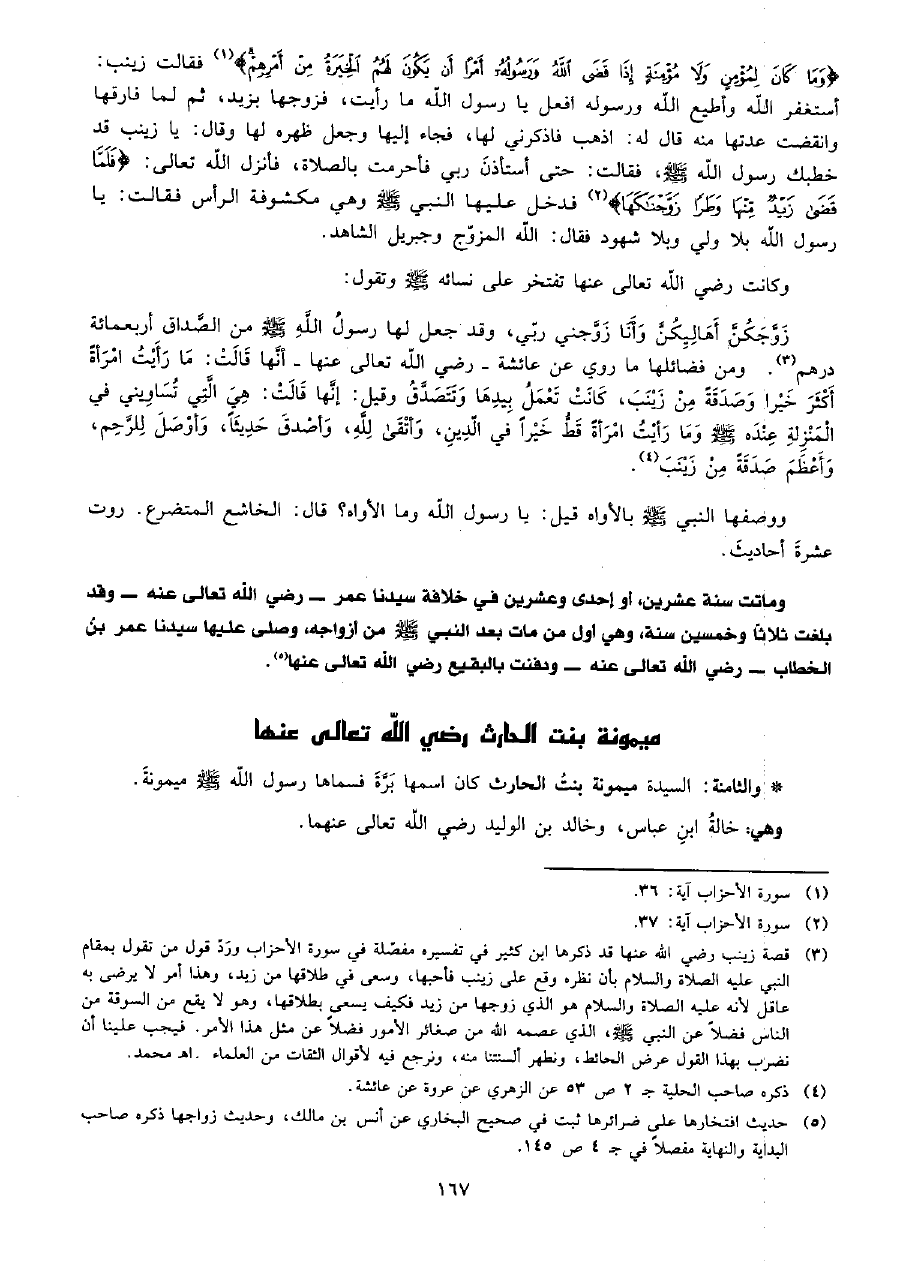 ﴿وَمَا كَانَ لِمُؤْمِنٍ وَلَا مُؤْمِنَةٍ إِذَا قَضَى ٱللَّهُ وَرَسُولُهُۥ أَمْرًا أَن يَكُونَ لَهُمُ ٱلْخِيَرَةُ مِنْ أَمْرِهِمْ﴾(١) فقالت زينب:
أستغفر الله وأطيع الله ورسوله افعل يا رسول الله ما رأيت، فزوجها بزيد، ثم لما فارقها
وانقضت عدتها منه قال له: اذهب فاذكرني لها، فجاء إليها وجعل ظهره لها وقال: يا زينب قد
خطبك رسول الله ﷺ، فقالت: حتى أستأذنَ ربي فأحرمت بالصلاة، فأنزل الله تعالى: ﴿فَلَمَّا
قَضَىٰ زَيْدٌ مِّنْهَا وَطَرًا زَوَّجْنَـٰكَهَا﴾(٢) فدخل عليها النبي ﷺ وهي مكشوفة الرأس فقالت: يا
رسول الله بلا ولي وبلا شهود فقال: الله المزوّج وجبريل الشاهد.
وكانت رضي الله تعالى عنها تفتخر على نسائه ﷺ وتقول:
زَوَّجَكُنَّ أَهَالِيكُنَّ وَأَنَا زَوَّجني ربّي، وقد جعل لها رسولُ اللَّهِ ﷺ من الصَّداق أربعمائة
درهم(٣). ومن فضائلها ما روي عن عائشة ـ رضي الله تعالى عنها ـ أنَّها قَالَتْ: مَا رَأَيْتُ امْرَأَةً
أَكْثَرَ خَيْرا وَصَدَقَةً مِنْ زَيْنَبَ، كَانَتْ تَعْمَلُ بِيدِهَا وَتَتَصَدَّقُ وقيل: إنَّها قَالَتْ: هِيَ الَّتِي تُسَاوِيني في
الْمَنْزِلةِ عِنْدَه ﷺ وَمَا رَأيْتُ امْرَأةً قَطُّ خَيْراً في الّدِينِ، وَأَتْقَىٰ لِلَّهِ، وَأَصْدقَ حَدِيثَاً، وَأَرْصَلَ لِلرَّحِم،
وَأَعْظَمَ صَدَقَةً مِنْ زَيْنَبَ(٤).
ووصفها النبي ﷺ بالأواه قيل: يا رسول الله وما الأواه؟ قال: الخاشع المتضرع. روت
عشرةَ أحاديثَ.
وماتت سنة عشرين، أو إحدى وعشرين في خلافة سيدنا عمر ــ رضي الله تعالى عنه ــ وقد
بلغت ثلاثاً وخمسين سنة، وهي أول من مات بعد النبي ﷺ من أزواجه، وصلى عليها سيدنا عمر بنُ
الخطاب ــ رضي الله تعالى عنه ــ ودفنت بالبقيع رضي الله تعالى عنها(٥).
ميمونة بنت الحارث رضي اللّه تعالى عنها
* والثامنة: السيدة ميمونة بنتُ الحارث كان اسمها بَرَّةَ فسماها رسول الله ﷺ ميمونةَ.
وهي: خالةُ ابنِ عباس، وخالد بن الوليد رضي الله تعالى عنهما.
(١) سورة الأحزاب آية: ٣٦.
(٢) سورة الأحزاب آية: ٣٧.
(٣) قصة زينب رضي الله عنها قد ذكرها ابن كثير في تفسيره مفصّلة في سورة الأحزاب وردّ قول من تقول بمقام
النبي عليه الصلاة والسلام بأن نظره وقع على زينب فأحبها، وسعى في طلاقها من زيد، وهذا أمر لا يرضى به
عاقل لأنه عليه الصلاة والسلام هو الذي زوجها من زيد فكيف يسعى بطلاقها، وهو لا يقع من السوقة من
الناس فضلاً عن النبي ﷺ، الذي عصمه الله من صغائر الأمور فضلاً عن مثل هذا الأمر. فيجب علينا أن
نضرب بهذا القول عرض الحائط، ونطهر ألسنتنا منه، ونرجع فيه لأقوال الثقات من العلماء .اهـ محمد.
(٤) ذكره صاحب الحلية جـ ٢ ص ٥٣ عن الزهري عن عروة عن عائشة.
(٥) حديث افتخارها على ضرائرها ثبت في صحيح البخاري عن أنس بن مالك، وحديث زواجها ذكره صاحب
البداية والنهاية مفصلاً في جـ ٤ ص ١٤٥.
١٦٧